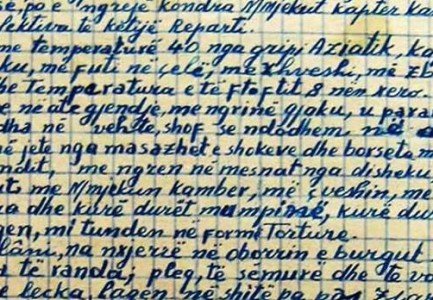 se po e ngrejë kondra N/Mjekut kapter
të këtije Reparti.
me temperaturë 40 nga gripi Aziatik, ka
ku, më futi në çelë, më xhvesh, më zb
he Temperatura e të ftoftit 8 nën xero.
e në atë gjendje, me ngrinë gjaku, u para
dha në vehte, shof se ndodhem në a
në jetë nga masazhet e shokeve dhe borsete m
ndit, me ngren në mesnat nga disheku
me N/mjekun Kamber, më çveshin, më
ua dhe kurë durët mumpinë, kurë du
gen, mi tunden në formë Torture.
na nxjerrë në oborrin e burgut
të randa; pleq, të sëmurë dhe të va
lecka, lagen në shitë